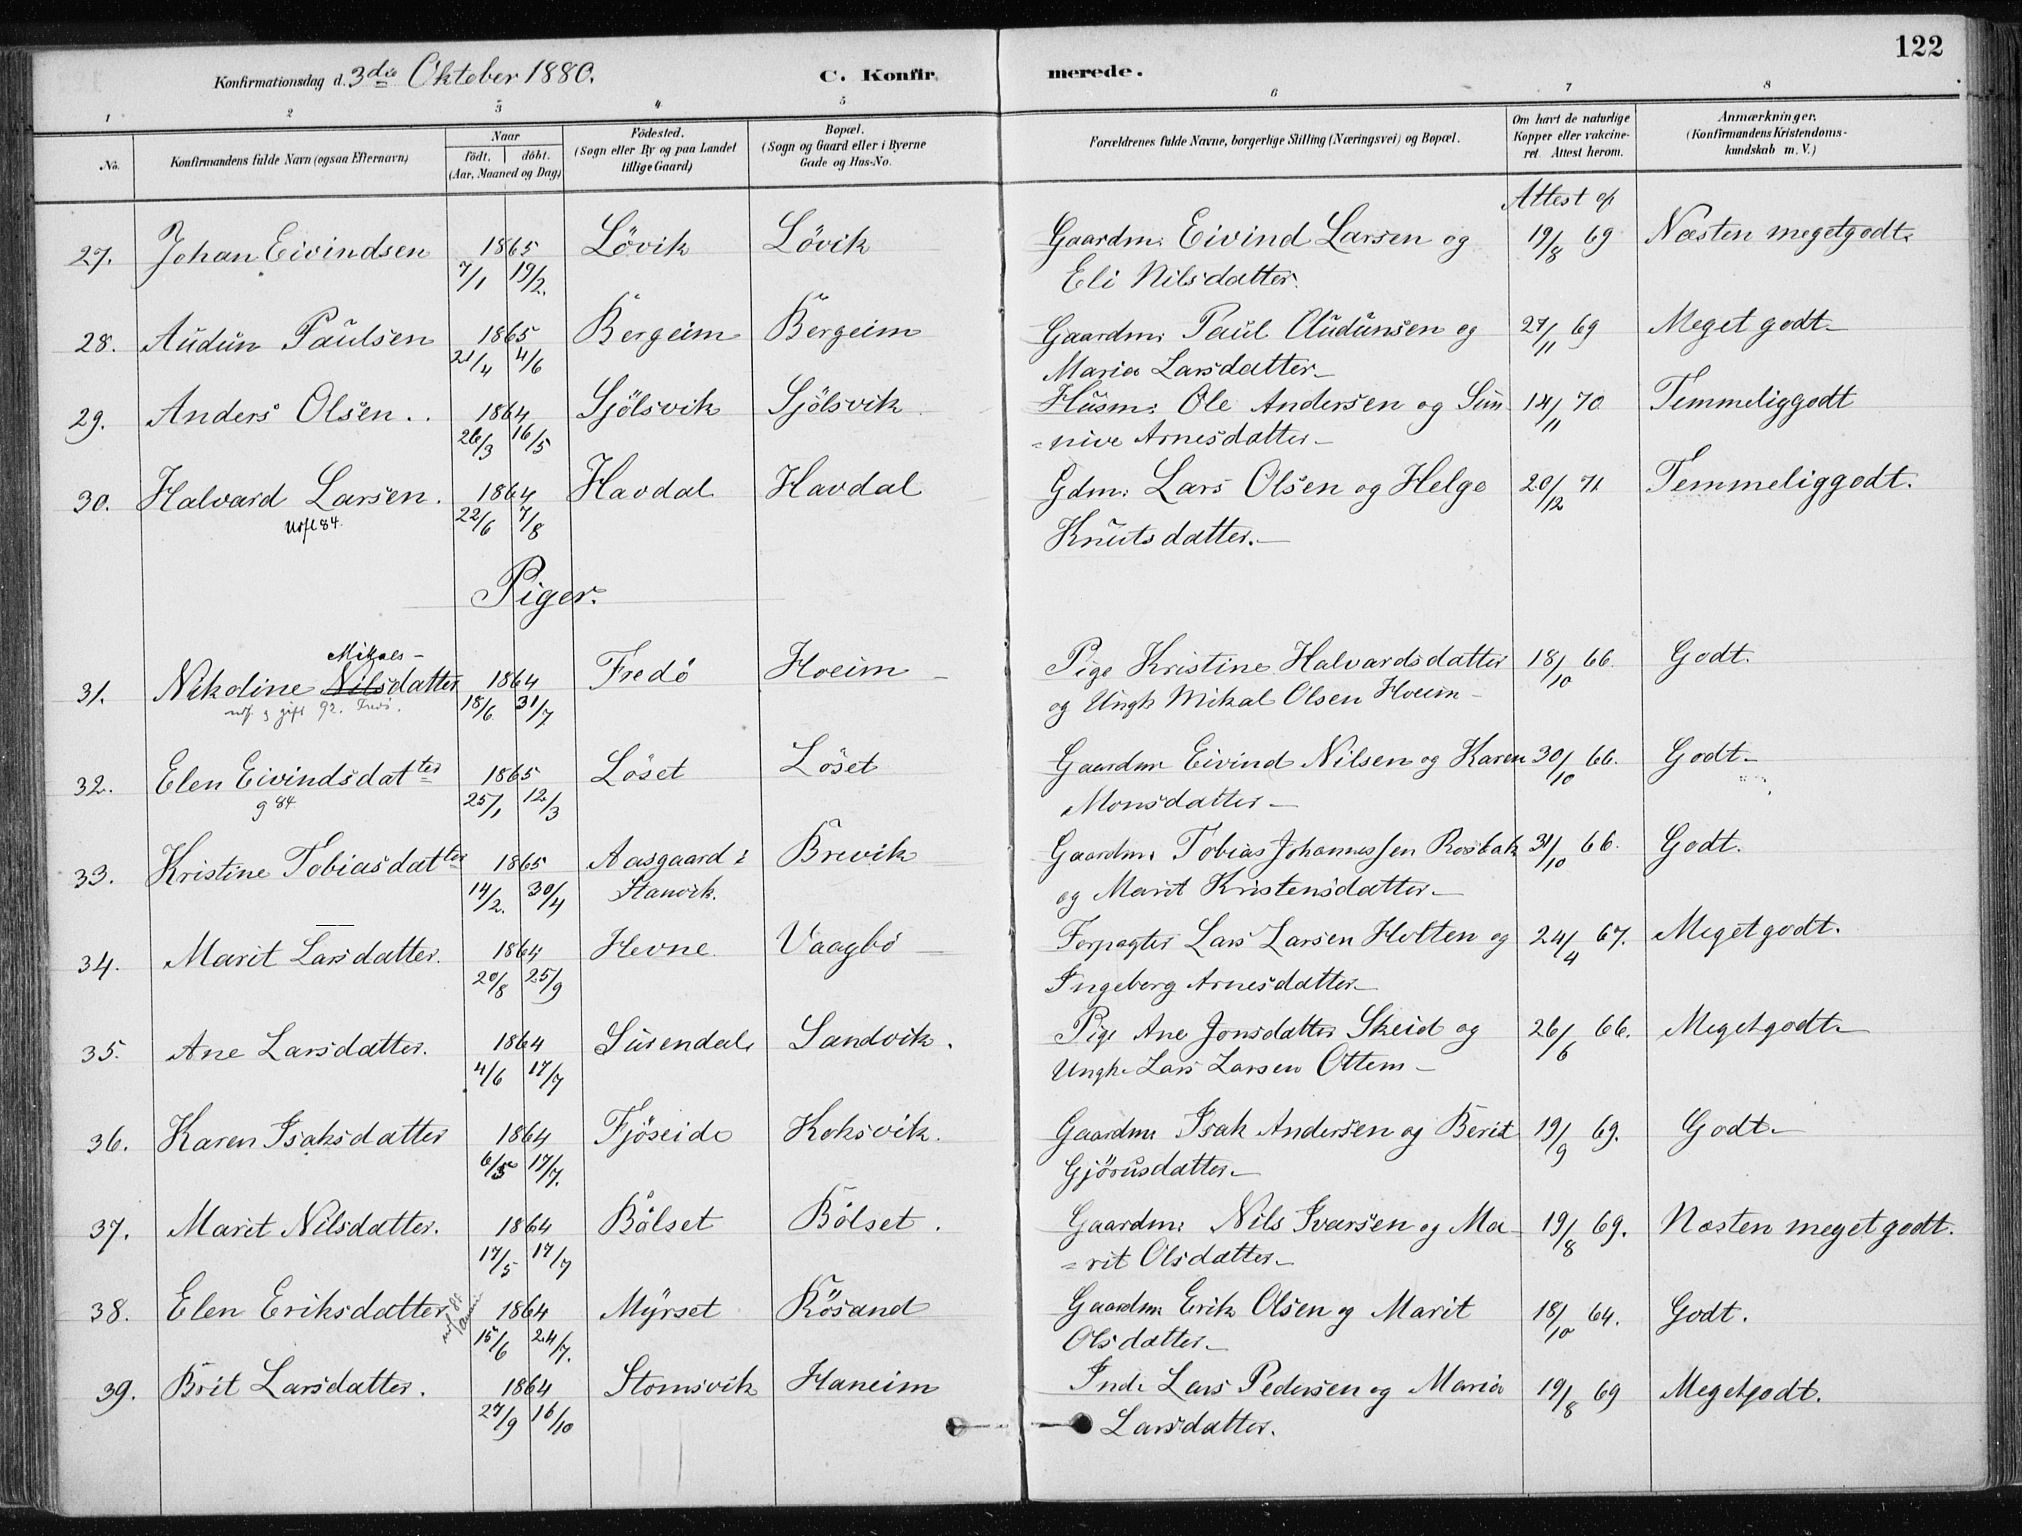 122
Konfirmationsdag d. 3die Oktober 1880. C. Konfirmerede.
1 2 3 4 5 6 7 8
No. Konfirmandens fulde Navn (ogsaa Efternavn) Naar födt. döbt. (Aar, Maaned og Dag) Födested. (Sogn eller By og paa Landet tillige Gaard) Bopæl. (Sogn og Gaard eller i Byerne Gade og Hus-No. Forældrenes fulde Navne, borgerlige Stilling (Næringsvei) og Bopæl. Om havt de naturlige Kopper eller vakcineret. Attest herom. Anmærkninger. (Konfirmandens Kristendomskundskab m. V.)
Attest af
27. Johan Eivindsen 1865 Lövik Lövik Gaardm: Eivind Larsen og 19/8 69 Næsten megetgodt.
7/1 19/2. Eli Nilsdatter.
28. Audun Paulsen 1865 Bergeim Bergeim Gaardm: Paul Audunsen og 27/11 69 Meget godt
21/4 4/6 Maria Larsdatter
29. Anders Olsen.. 1864 Sjölsvik Sjölsvik Husm: Ole Andersen og Sun- 14/11 70 Temmeliggodt
26/3 16/5 =nive Arnesdatter
30. Halvard Larsen. 1864 Havdal Havdal Gdm: Lars Olsen og Helge 20/12 71. Temmeliggodt.
22/6 7/8 Knutsdatter.
84.
Piger.
Mikals-
31. Nikoline Nilsdatter 1864 Fredö Hoeim Pige Kristine Halvardsdatter 18/10 66. Godt.
gift 92. 18/6 31/7 og Ungk Mikal Olsen Hoeim
32. Elen Eivindsdatter 1865 Löset Löset Gaardm Eivind Nilsen og Karen 30/10 66. Godt
g 84 25/1 12/3 Monsdatter
33. Kristine Tobiasdatter 1865 Aasgaard i Brevik Gaardm: Tobias Johannessen Rosbak 31/10 66. Godt.
14/2. 30/4 Stanvik. og Marit Kristensdatter
34. Marit Larsdatter. 1864 Hevne Vaagbö Forpagter Lars Larsen Holten og 24/4 67. Megetgodt.
20/8 25/9 Ingeborg Arnesdatter
35. Ane Larsdatter. 1864 Surendal Sandvik. Pige Ane Jonsdatter Skeid og 26/6 66. Megetgodt
4/6 17/7 Ungk. Lars Larsen Ottem
36. Karen Isaksdatter 1864 Fjöseide Koksvik. Gaardm Isak Andersen og Berit 19/9 69. Godt
6/5 17/7. Gjörusdatter
37. Marit Nilsdatter. 1864 Bölset Bölset. Gaardm: Nils Ivarsen og Ma- 19/8 69. Næsten megetgodt.
17/5 17/7 =rit Olsdatter
38. Elen Eriksdatter 1864 Myrset Kösand Gaardm Erik Olsen og Marit 18/10 64. Godt.
15/6 24/7. Olsdatter
39. Brit Larsdatter. 1864 Stomsvik Haneim Ind: Lars Pedersen og Maria 19/8 69 Megetgodt.
27/9 16/10 Larsdatter.